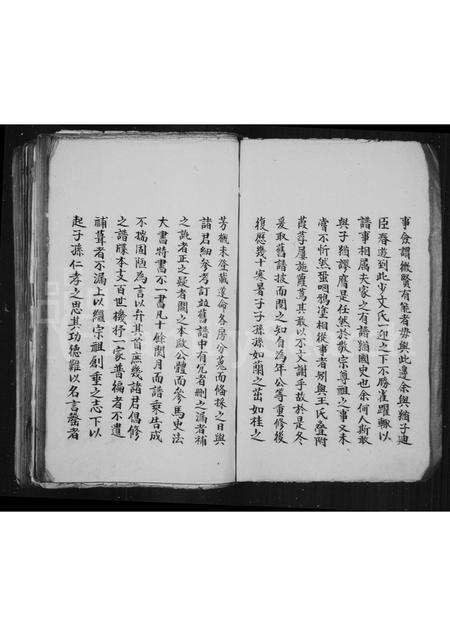 事僉謂微賢有業者毋與此邊余與猶子迪
臣春遊到此乡文氏一迎之下不勝雀躍輙以
譜事相屬夫家之有譜猶國史也余何人斯敢
與子猶謬膺是任然於敬宗尊祖之事又未
嘗不忻然蚕咽鴉塗相從事者歹與王氏叠附
葭莩屡施蘿蔦其敢以不文謝乎故於是冬
爰取舊譜披而閱之知自為年公等重修後
復歷幾十寒暑子子孫孫如蘭之茁如桂之
芳概未登載遂命各房分蒐而條採之日與
諸君細參考訂玆舊譜中有冗者刪之漏者補
之訛者正之疑者闕之本歐公體而參馬史法
大書特書不一書凡十餘閱月而譜乘告成
不揣固陋為言以弁其首庶幾諸君倡修
之譜牒本支百世機抒一家普徧者不遺
補葺者不漏上以繼宗祖創垂之志下以
起子孫仁孝之思其功德難以名言罄者